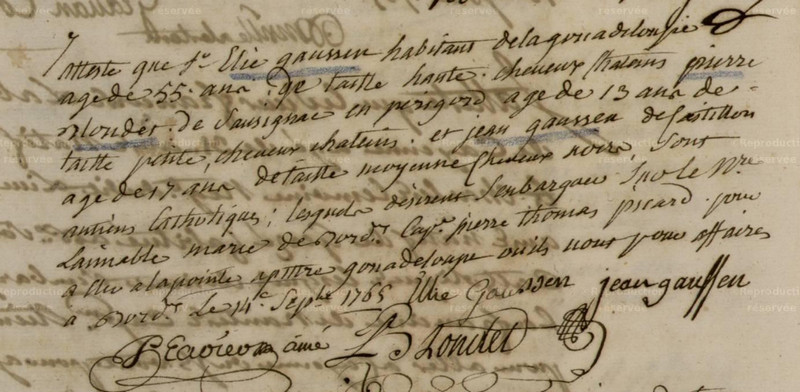 J'atteste que Sr Elie gaussen habitant de la gouadeloupe
age de 55. ans de taille haute. cheveux chatains pierre
Blondet. de Sausignac en perigord age de 13 ans de
taille petite, cheveux chateins. et jean gaussen de Castillon
age de 17 ans de taille moyenne cheveux noirs. Sont
antiens Catholiques; lesquels desirent s'enbarquer sur le Nre
Laimable marie de Bordx. Capne. pierre thomas picard. pour
aller a la pointe apittre gouadeloupe ou ils vont pour affaires
a Bordx. Le 14e. Septbre 1765 Elie Gaussen jean gaussen
ainé Blondet